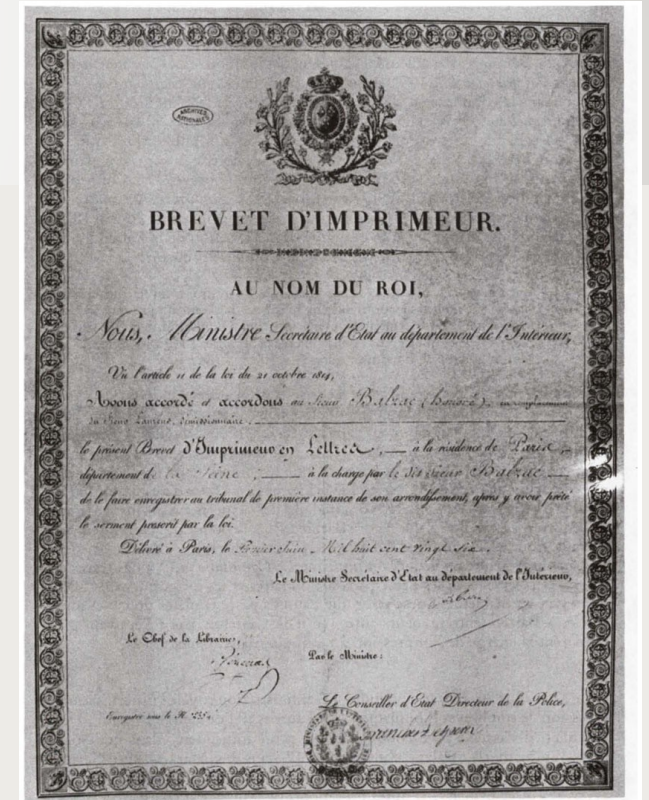 ARCHIVES NATIONALES
BREVET D'IMPRIMEUR.
AU NOM DU ROI,
Nous, Ministre Secrétaire d'Etat au département de l'Intérieur,
Vu l'article 11 de la loi du 21 octobre 1814,
Avons accordé et accordons au Sieur Balzac (honoré) en remplacement
du Sieur Laurens, démissionnaire,
le présent Brevet d'Imprimeur en Lettres, à la résidence de Paris,
département de la Seine, à la charge par le dit Sieur Balzac
de le faire enregistrer au tribunal de première instance de son arrondissement, après y avoir prêté
le serment prescrit par la loi.
Délivré à Paris, le Premier Juin Mil huit cent vingt six.
Le Ministre Secrétaire d'Etat au département de l'Intérieur,
Le Chef de la Librairie,
Par le Ministre:
Le Conseiller d'Etat Directeur de la Police,
Enregistré sous le N.